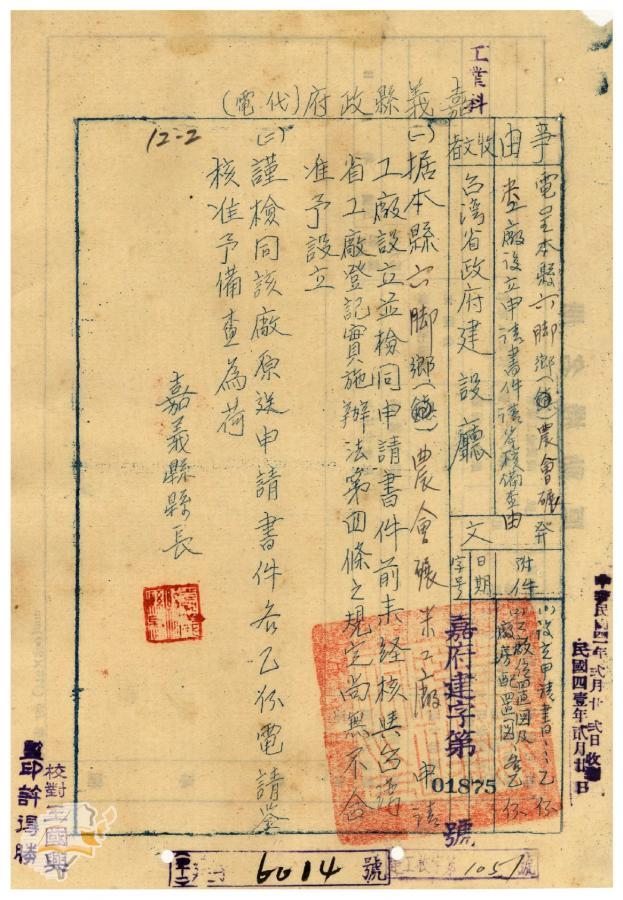 工業科
嘉義縣政府(代電)
事由
電呈本縣六脚鄉(鎮)農會碾
米工廠設立申請書件請鑒核備查由
收文者
台湾省政府建設廳
發文
附件
(1)設立申請書:乙份
(2)工廠位置図及
廠房配置図:各乙份
日期
字号
嘉府建字第
01875
號
(一)据本縣六脚鄉(鎮)農會碾米工廠申請
工廠設立並檢同申請書件前来経核與台湾
省工廠登記實施辦法第四條之規定尚無不合
准予設立
(二)謹檢同該廠原送申請書件各乙份電請鑒
核准予備查為荷
嘉義縣縣長
12-2
中華民國四一年弍月廿弍日收
民國四壹年貳月廿日
校對王國興
監印許得勝
6014號
1051號